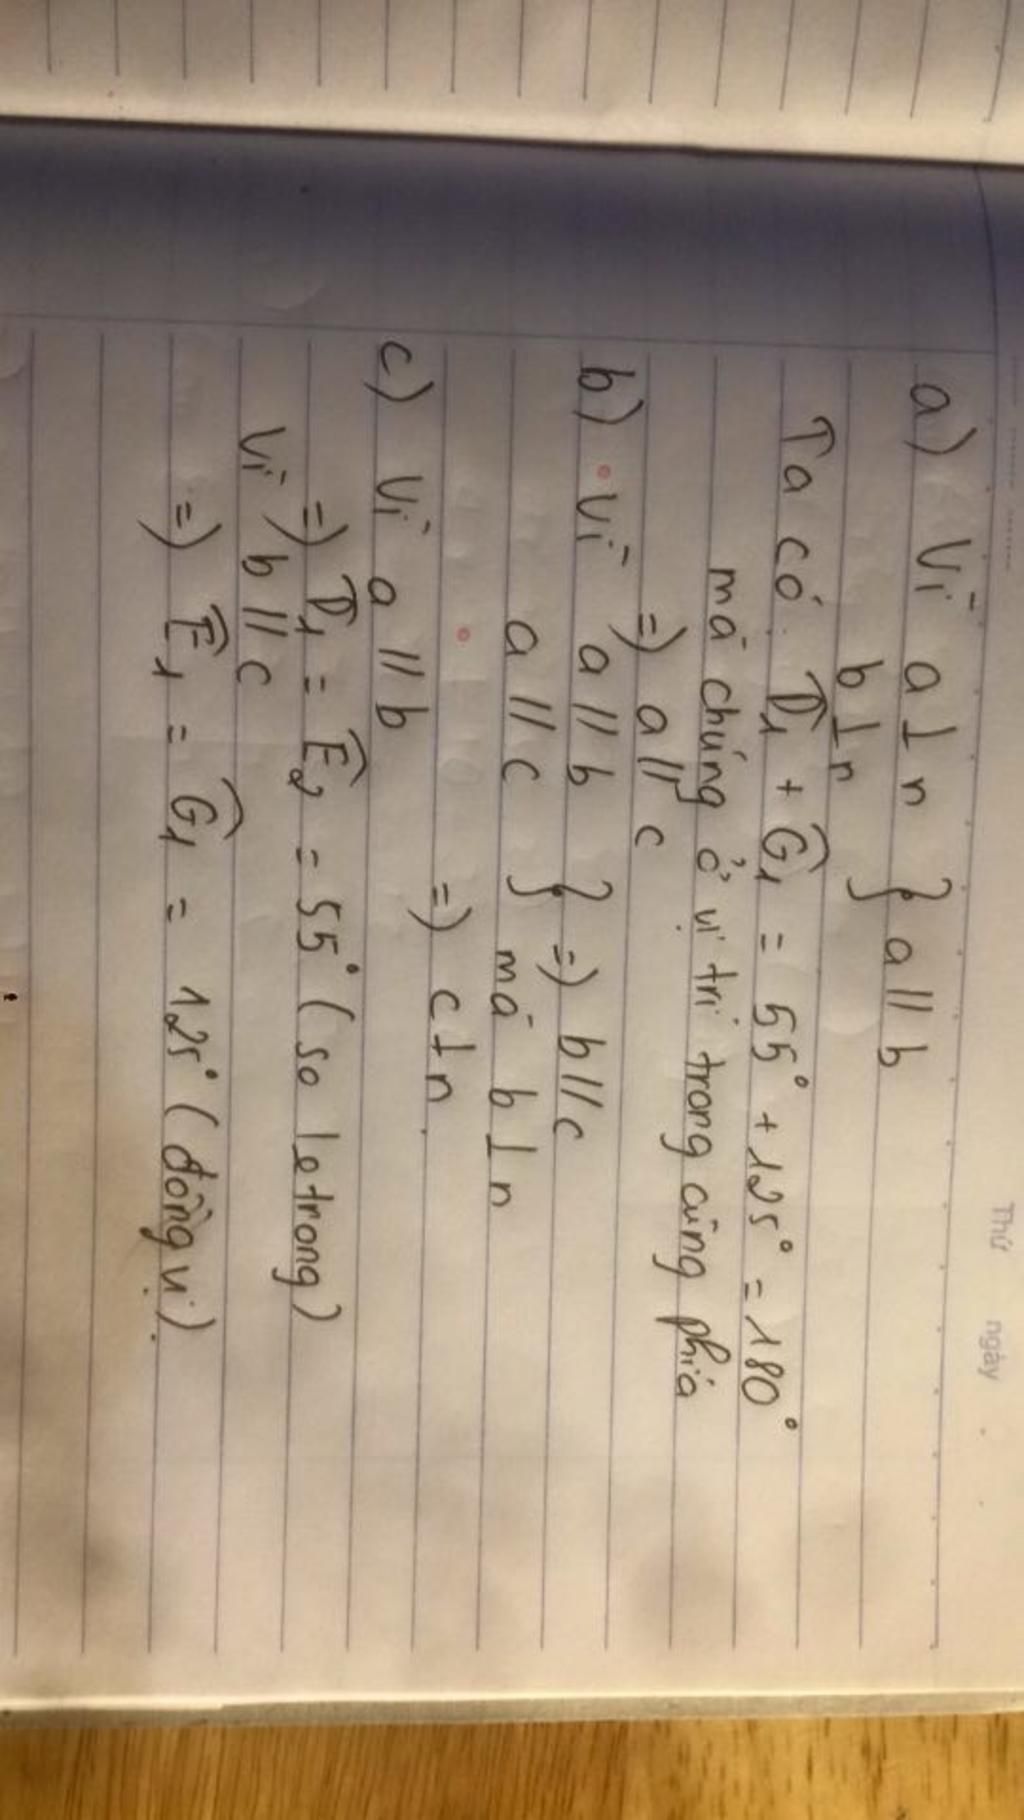 Thứ ngày
a) Vì a ⊥ n } a // b
b ⊥ n
Ta có: D̂1 + Ĝ1 = 55° + 125° = 180°
mà chúng ở vị trí trong cùng phía
=) a // c
b) Vì a // b } =) b // c
a // c } mà b ⊥ n
=) c ⊥ n.
c) Vì a // b
=) D̂1 = Ê2 = 55° (so le trong)
Vì b // c
=) Ê1 = Ĝ1 = 125° (đồng vị).